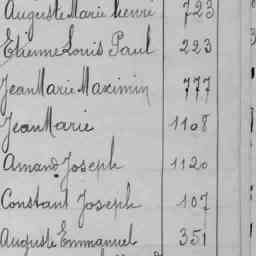 Auguste Marie henri 723
Etienne Louis Paul 223
Jean Marie Maximin 777
Jean Marie 1108
Amand Joseph 1120
Constant Joseph 107
Auguste Emmanuel 351